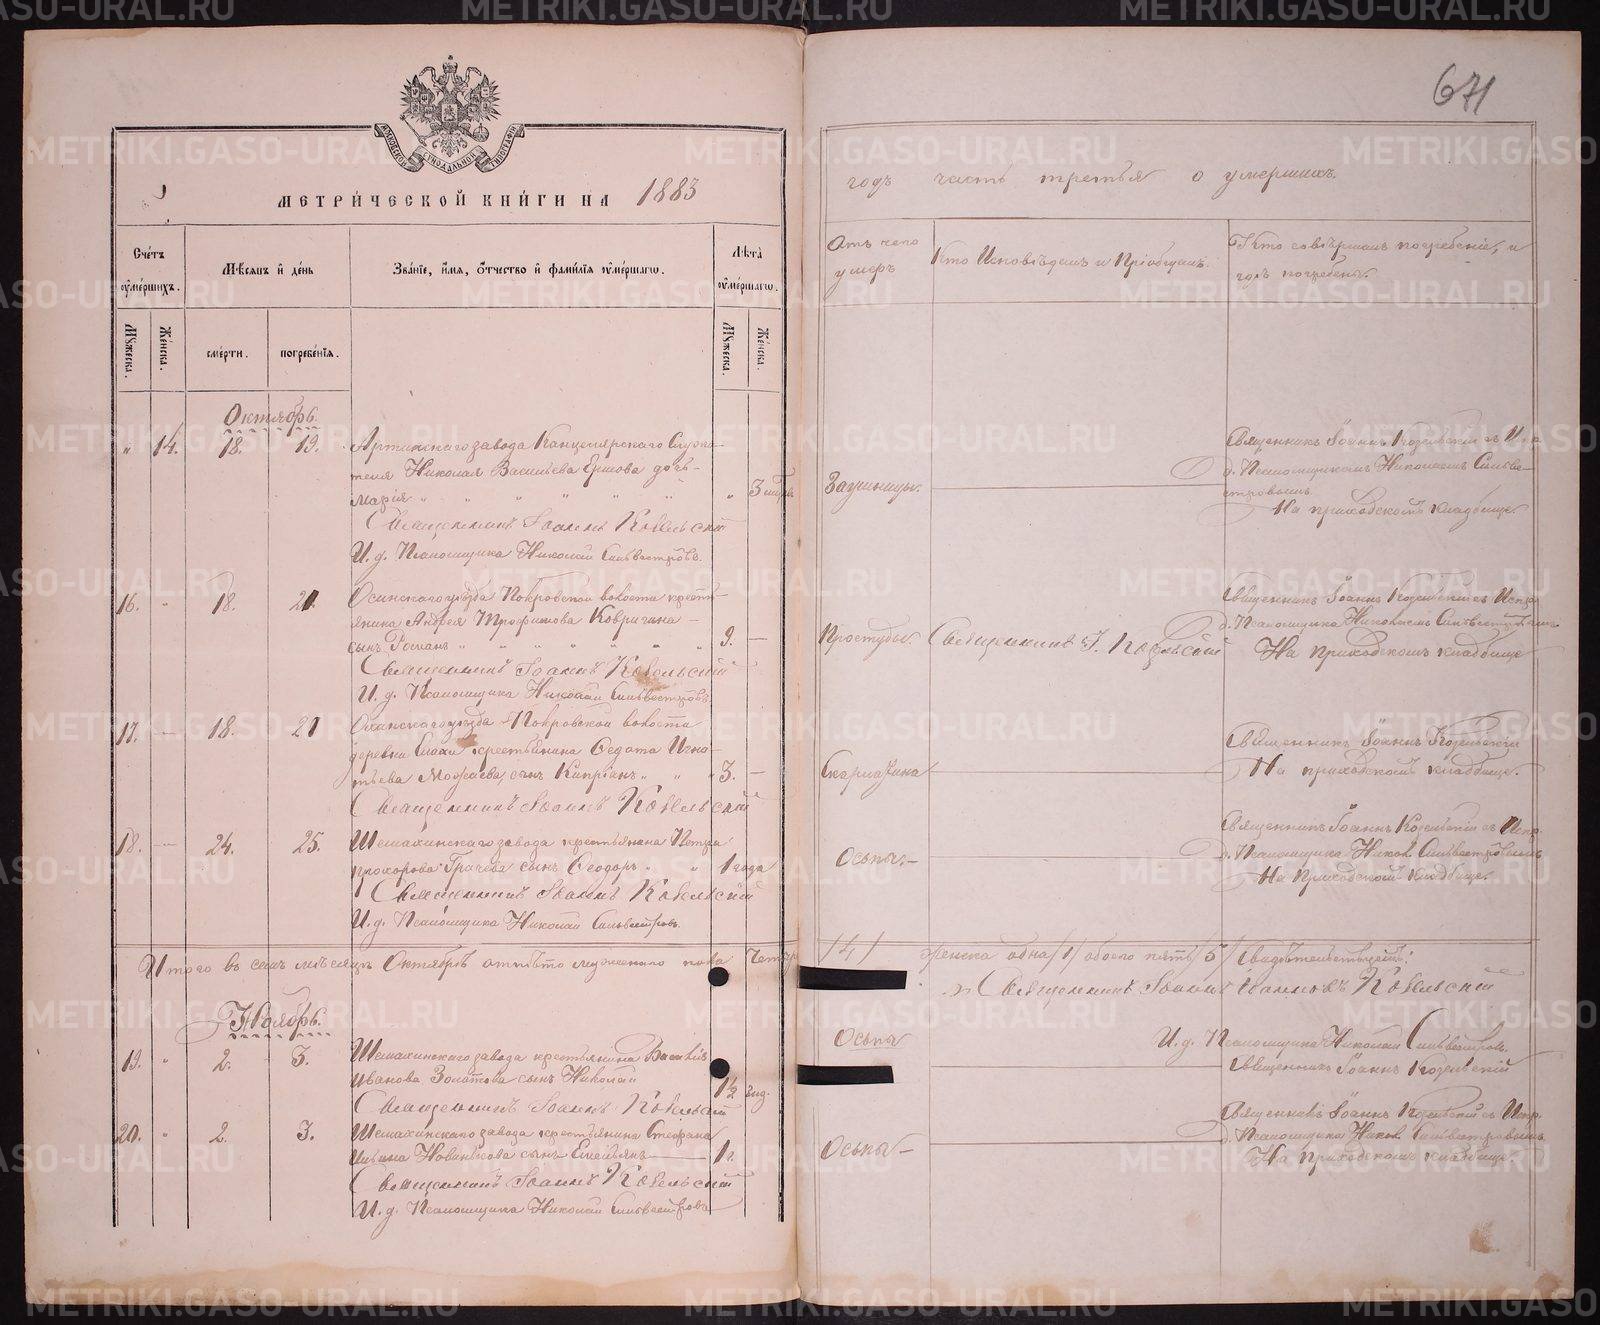 671
МОСКОВСКОЙ СѴНОДАЛЬНОЙ ТИПОГРАФІИ
МЕТРИ́ЧЕСКОЙ КНИ́ГИ НА 1883
годъ часть третья о умершихъ.
Сче́тъ ᲂу҆ме́ршихъ.
Мꙋ́жеска.
Же́нска.
Мѣ́сяцъ и҆ де́нь
сме́рти.
погребе́нїѧ.
Зва́нїе, и҆́мѧ, ѻ҆́тчество и҆ фами́лїѧ ᲂу҆ме́ршагѡ.
Лѣ́та ᲂу҆ме́ршагѡ.
Мꙋ́жеска.
Же́нска.
Отъ чего умеръ
Кто Исповѣдалъ и Пріобщалъ.
Кто совершалъ погребеніе, и гдѣ погребены.
Октябрь.
" 14. 18. 19. Артинскаго завода Канцелярскаго Служи-
теля Николая Васильева Ершова дочь
Марія " " " " " " " 3
Священникъ Іоаннъ Козельскій
И. д. Псаломщика Николай Сильвестровъ.
Заушницы.
Священникъ Іоаннъ Козельскій съ И.
д. Псаломщикомъ Николаемъ Сильве-
стровымъ.
На приходскомъ кладбище
16. " 18. 21. Осинскаго уѣзда Покровской волости кресть-
янина Андрея Трофимова Ковригина
сынъ Романъ " " " " " " 9. —
Священникъ Іоаннъ Козельскій
И. д. Псаломщика Николай Сильвестровъ
Простуды.
Священникъ І. Козельскій
Священникъ Іоаннъ Козельскій съ Испр.
д. Псаломщика Николаемъ Сильвестровымъ
На приходскомъ кладбище
17. — 18. 21 уѣзда Покровской волости
деревни крестьянина Ѳедота Игна-
тьева Можаева, сынъ Кипріанъ " " " 3. —
Священникъ Іоаннъ Козельскій
Скарлатина
Священникъ Іоаннъ Козельскій
На приходскомъ кладбище.
18. — 24. 25. Шемахинскаго завода крестьянина Петра
Прохорова Грачева сынъ Ѳеодоръ " " 1 года
Священникъ Іоаннъ Козельскій
И. д. Псаломщика Николай Сильвестровъ.
Оспы —
Священникъ Іоаннъ Козельскій съ Испр.
д. Псаломщика Никол. Сильвестровымъ
На Приходскомъ кладбище.
Итого въ семъ мѣсяцѣ Октябрѣ отпѣто мужескаго пола Четыре
/4/ женска одна /1/ обоего пять /5/ Свидѣтельствуемъ:
Священникъ Іоаннъ Іоанновъ Козельскій
И. д. Псаломщика Николай Сильвестровъ.
Ноябрь.
19. " 2. 3. Шемахинскаго завода крестьянина Василія
Иванова Золотова сынъ Николай 1½ год.
Священникъ Іоаннъ Козельскій
Оспы
Священникъ Іоаннъ Козельскій
20. " 2. 3. Шемахинскаго завода крестьянина Стефана
сынъ Емельянъ 1 г.
Священникъ Іоаннъ Козельскій
И. д. Псаломщика Николай Сильвестровъ
Оспы —
Священникъ Іоаннъ Козельскій съ Испр.
д. Псаломщика Никол. Сильвестровымъ
На Приходскомъ кладбище
METRIKI.GASO-URAL.RU